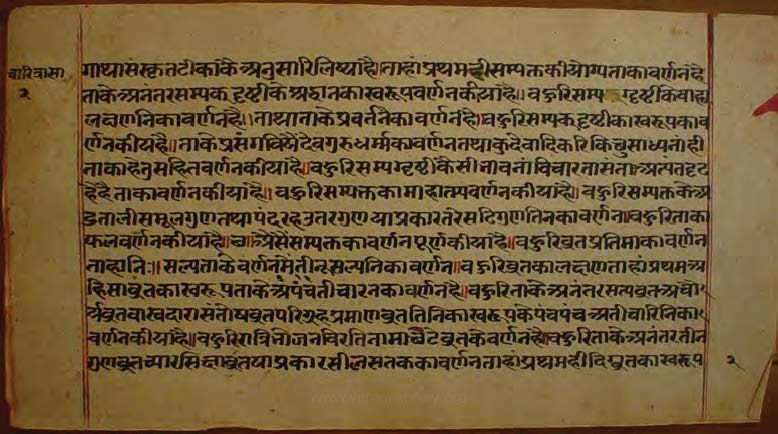 चारित्रासा
२
गाथासंस्कृतटीकाकैअनुसारिलिष्याहै।ताहांप्रथमहीसम्यक्तकीयोग्यताकावर्णनहै
ताकेअनंतरसम्यकदृष्टीकेश्रद्धानकास्वरूपवर्णनकीयाहै॥वहुरिसम्यग्दृष्टीकेवाह्य
लक्षणनिकावर्णनहै॥ वहुरिसम्यकदृष्टीकास्वरूपकाव
र्णनकीयहै॥ताकेप्रसंगविषैदेवगुरुधर्म्मकावर्णनतथाकुदेवादिकरिकिछुसाध्यनांही
ताकाहेतुसहितवर्णनकीयाहै॥वहुरिसम्यग्दृष्टीकैसीभावनांविचारतासंताअत्यंतदृढ
हैहैताकावर्णनकीयाहै॥वहुरिसम्यक्तकामाहात्म्यवर्णनकीयाहै॥वहुरिसम्यक्तकेअ
डतालीसमूलगुणतथापंदरहउतरगुणयाप्रकारतरेसठिगुणतिनकावर्णन॥वहुरिताका
फलवर्णनकीयाहै॥ अैसैंसम्यक्तकावर्णनपूर्णकीयाहै॥वहुरिव्रतप्रतिमाकावर्णन
सल्यताकेवर्णनमैतीनूसल्यनिकावर्णन॥वहुरिव्रतकालक्षणताहांप्रथमअ
हिंसाव्रतकास्वरूपताकेअपंचतीचारनकावर्णनहै॥वहुरिताकेअनंतरसत्यव्रतअचौ
र्यव्रतवास्वदारासंतोषव्रतपरिग्रहप्रमाणव्रततिनिकास्वरूपकेपंचपंचअतीचारिनिका
वर्णनकीयाहै॥वहुरिरात्रिभोजनविरतिनामाछठैव्रतकेवर्णनहै॥वहुरिताकेअनंतरतीन
गुणव्रतच्यारसिक्षाव्रतयाप्रकारसीलसतककावर्णनताहांप्रथमहीदिग्व्रतकास्वरूप
२